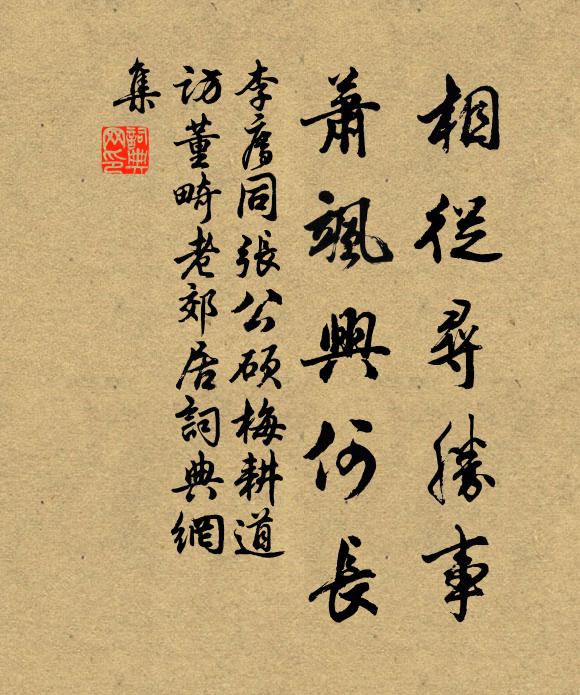 相從尋勝事
蕭颯興何長
李廌同張公碩梅耕道
訪董畸老郊居詞典網
集
詞典
网印